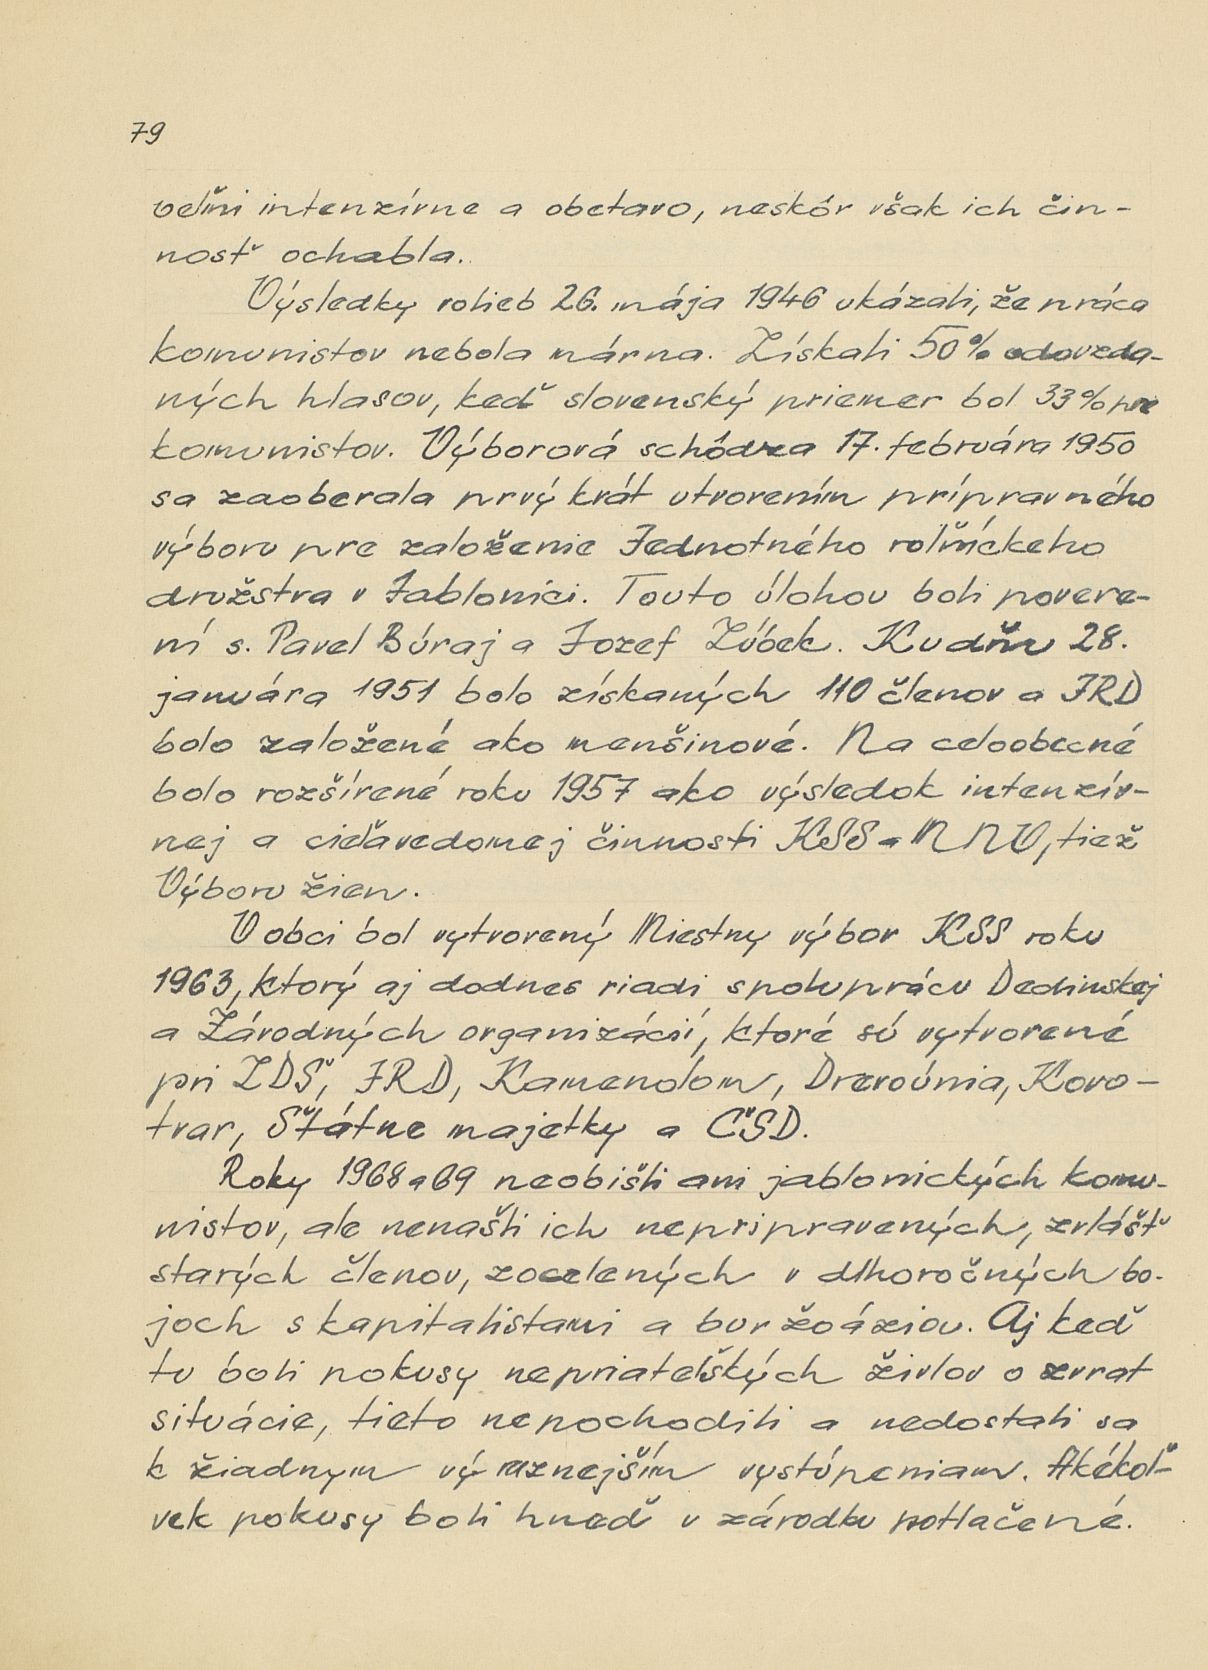 79
veľmi intenzívne a obetavo, neskôr však ich čin-
nosť ochabla.
Výsledky volieb 26. mája 1946 ukázali, že práca
komunistov nebola márna. Získali 50% odovzda-
ných hlasov, keď slovenský priemer bol 33% pre
komunistov. Výborová schôdza 17. februára 1950
sa zaoberala prvý krát utvorením prípravného
výboru pre založenie Jednotného roľníckeho
družstva v Jablonici. Touto úlohou boli povere-
ní s. Pavel Búraj a Jozef Zúbek. Ku dňu 28.
januára 1951 bolo získaných 110 členov a JRD
bolo založené ako menšinové. Na celoobecné
bolo rozšírené roku 1957 ako výsledok intenzív-
nej a cieľavedomej činnosti KSS a MNV, tiež
Výboru žien.
V obci bol vytvorený Miestny výbor KSS roku
1963, ktorý aj dodnes riadi spoluprácu Dedinskej
a Závodných organizácií, ktoré sú vytvorené
pri ZDŠ, JRD, Kameňolom, Drevoúnia, Kovo-
tvar, Štátne majetky a ČSD.
Roky 1968 a 69 neobišli ani jablonických komu-
nistov, ale nenašli ich nepripravených, zvlášť
starých členov, zocelených v dlhoročných bo-
joch s kapitalistami a buržoáziou. Aj keď
tu boli pokusy nepriateľských živlov o zvrat
situácie, tieto nepochodili a nedostali sa
k žiadnym výraznejším vystúpeniam. Akékoľ-
vek pokusy boli hneď v zárodku potlačené.